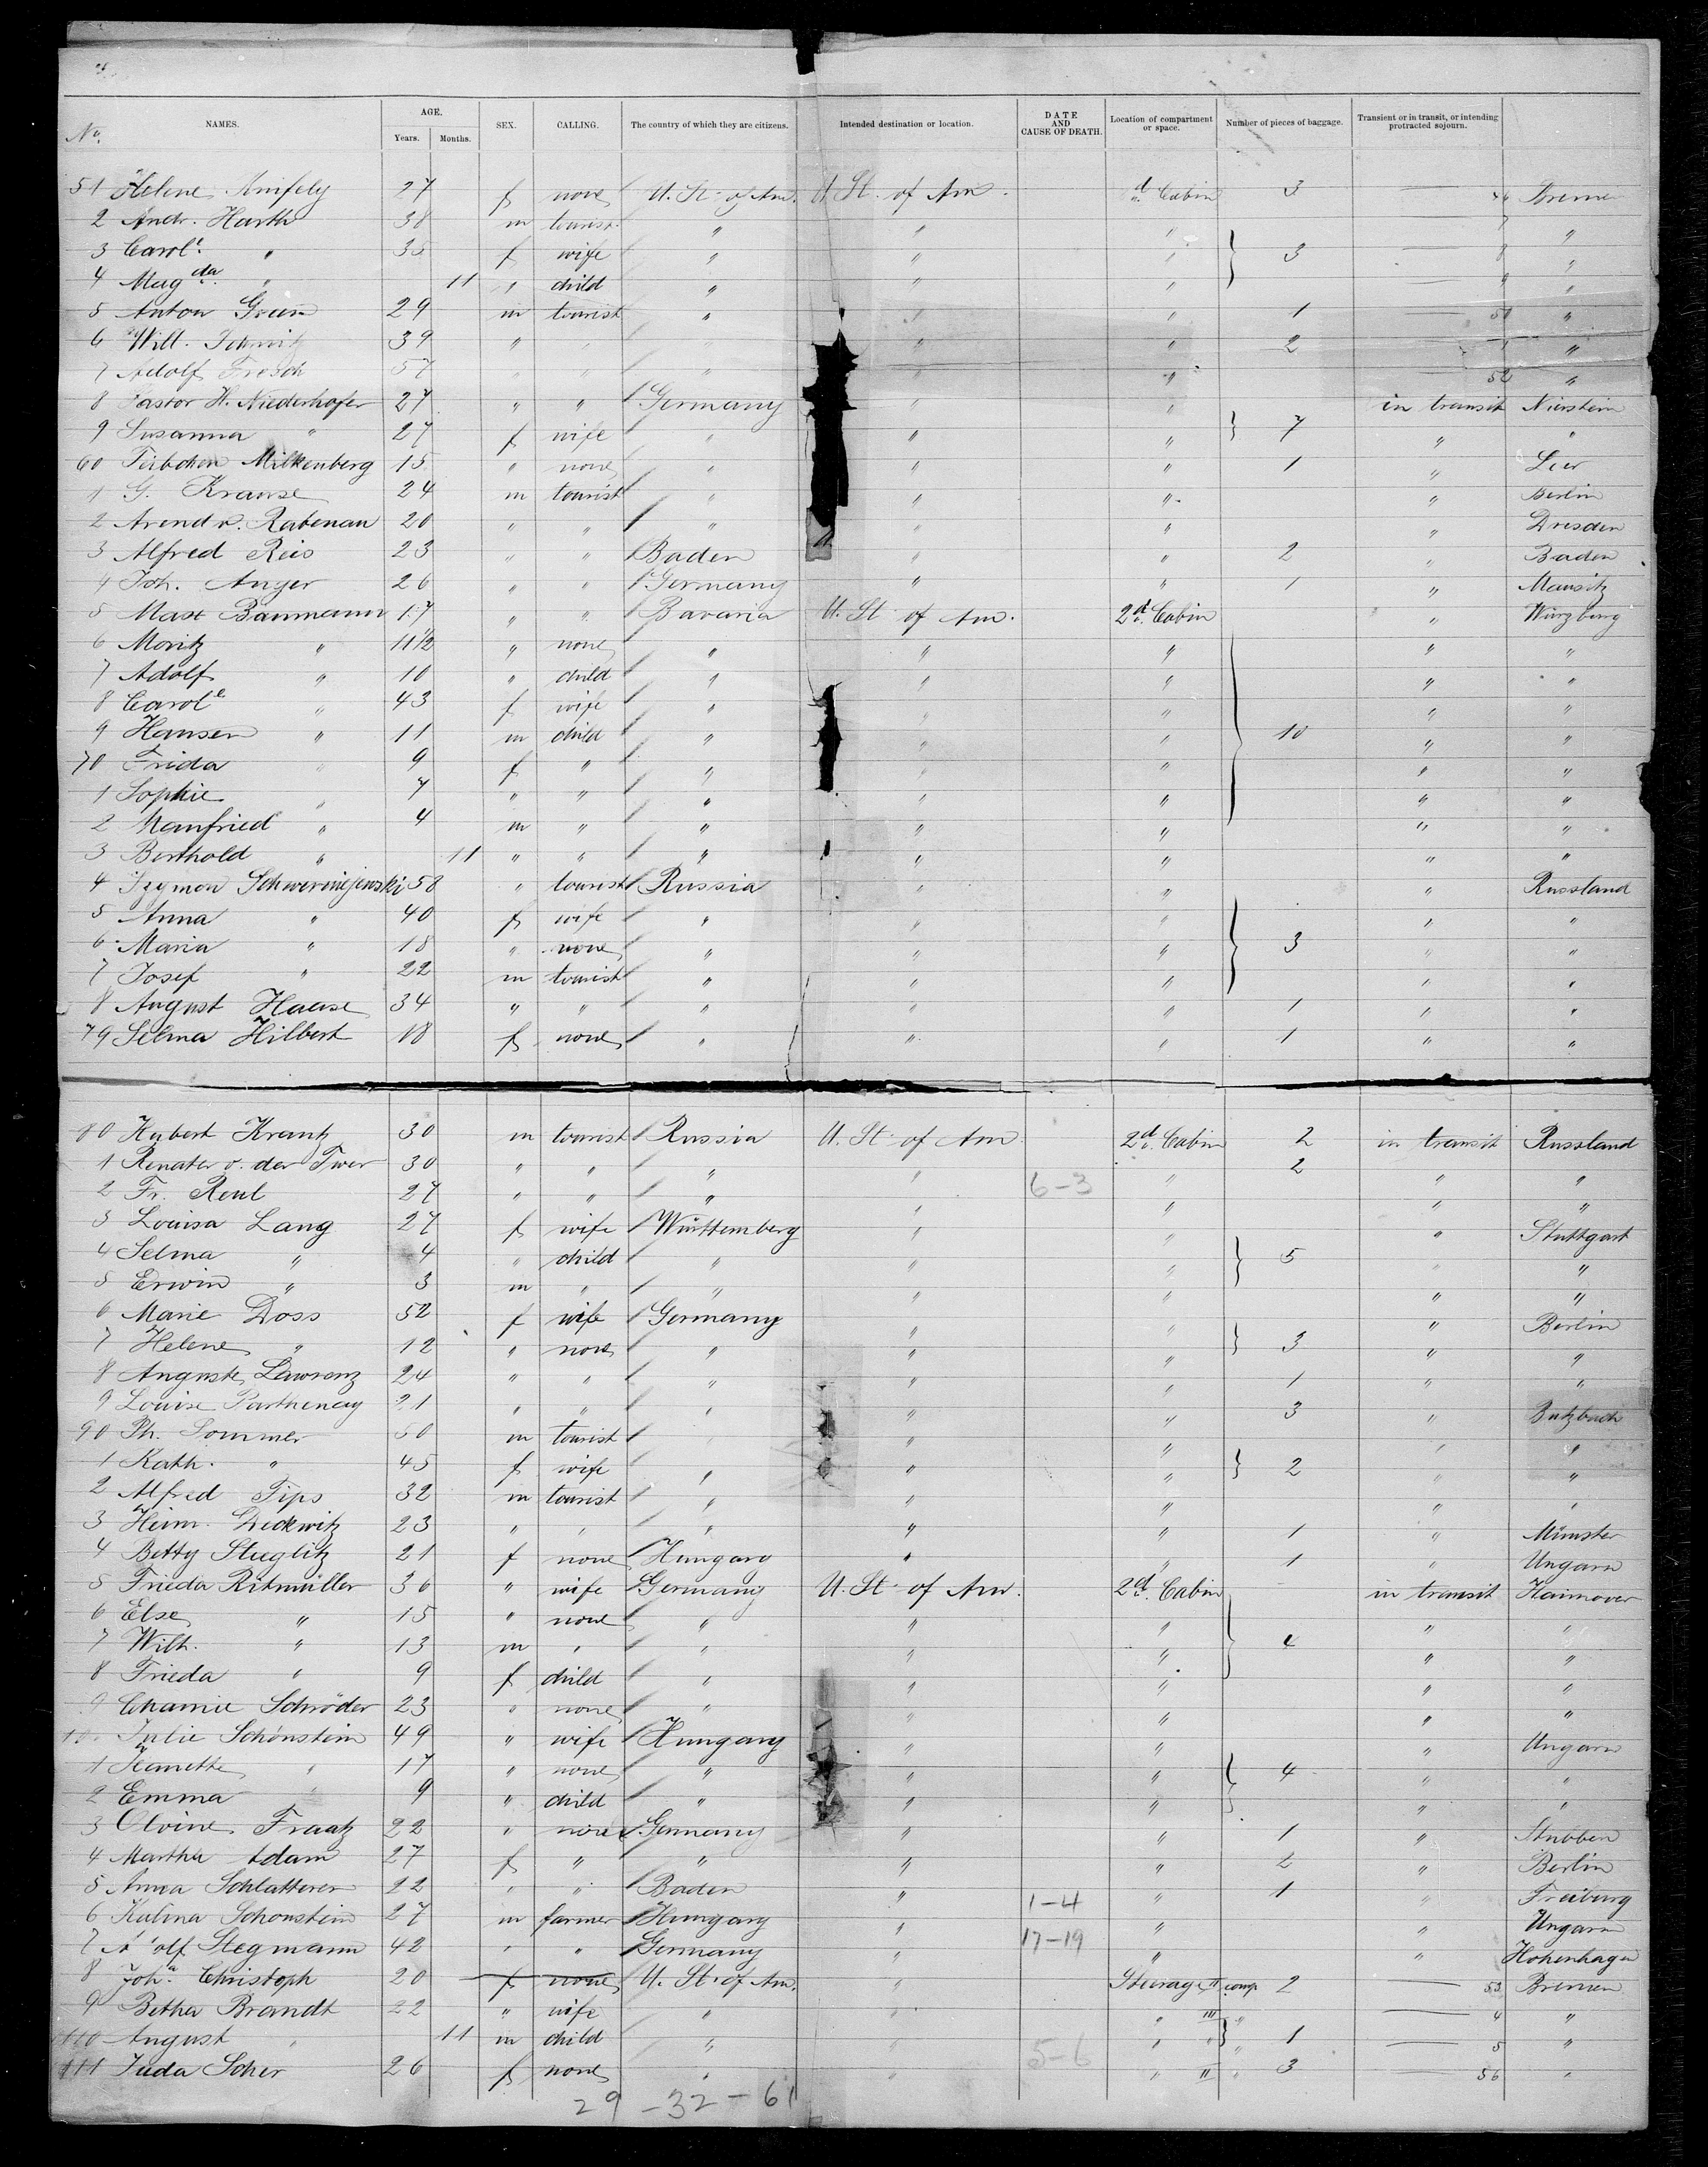 No. NAMES. AGE. Years. Months. SEX. CALLING. The country of which they are citizens. Intended destination or location. DATE AND CAUSE OF DEATH. Location of compartment or space. Number of pieces of baggage. Transient or in transit, or intending protracted sojourn.
51 Helene 27 f none U. St. of Am. U. St. of Am. Cabin 3 —
2 Andr. Harth 38 m tourist " " " 7 "
3 Carol. " 35 f wife " " " 3 — 8 "
4 Magda. " 11 " child " " " 9 "
5 Anton Grün 29 m tourist " " " 1 — "
6 Wilh. 39 " " " " 2 — "
7 Adolf Fresch 57 " " " " " — 52 "
8 Pastor H. Niederhofer 27 " " Germany " " in transit Nierstein
9 Susanna " 27 f wife " " " 7 " "
60 Milkenberg 15 " none " " " 1 " Leer
1 G. Krause 24 m tourist " " " " Berlin
2 Arend v. Rabenau 20 " " " " " " Dresden
3 Alfred Reis 23 " " Baden " " 2 " Baden
4 Joh. Anger 26 " " Germany " " 1 "
5 Max Baumann 17 " " Bavaria U. St. of Am. 2d. Cabin " Würzburg
6 Moritz " 11 1/2 " none " " " " "
7 Adolf " 10 " child " " " " "
8 Carole " 43 f wife " " " " "
9 Hansen " 11 m child " " " 10 " "
70 Frida " 9 f " " " " " "
1 Sophie " 7 " " " " " " "
2 Manfried " 4 m " " " " " "
3 Berthold " 11 " " " " " " "
4 Szymon 58 " tourist Russia " " " Russland
5 Anna " 40 f wife " " " " "
6 Maria " 18 " none " " " 3 " "
7 Josef " 22 m tourist " " " " "
8 August Haase 34 " " " " " 1 " "
79 Selma Hilbert 18 f none " " " 1 " "
80 Hubert Krantz 30 m tourist Russia U. St. of Am. 2d. Cabin 2 in transit Russland
1 Renater v. der Twer 30 " " " " 6-3 " 2 " "
2 Fr. Reul 27 " " " " " " "
3 Louisa Lang 27 f wife Württemberg " " " Stuttgart
4 Selma " 4 " child " " " 5 " "
5 Erwin " 3 m " " " " " "
6 Marie Doss 52 f wife Germany " " " Berlin
7 Helene " 12 " none " " " 3 " "
8 Auguste Lawrenz 24 " " " " " 1 " "
9 Louise Parthenay 21 " " " " " 3 " Butzbach
90 Ph. Sommer 50 m tourist " " " "
1 Kath. " 45 f wife " " " 2 " "
2 Alfred Tips 32 m tourist " " " " "
3 Heinr. Deckwitz 23 " " " " " 1 " Münster
4 Betty Stieglitz 21 f none Hungary " " 1 " Ungarn
5 Frieda Ritmüller 36 " wife Germany U. St. of Am. 2d. Cabin in transit Hannover
6 Else " 15 " none " " " " "
7 Wilh. " 13 m " " " " 4 " "
8 Frieda " 9 f child " " " " "
9 Schröder 23 " none " " " " "
Julie Schönstein 49 " wife Hungary " " " Ungarn
1 Jeanette " 17 " none " " " 4 " "
2 Emma " 9 " child " " " " "
3 Olvine Fraatz 22 " none Germany " " 1 " Stubben
4 Martha Adam 27 f " " " " 2 " Berlin
5 Anna Schlatterer 22 " " Baden " " 1 " Freiburg
6 Kalina Schonstein 27 m farmer Hungary " 1-4 " " Ungarn
7 Stegmann 42 " " Germany " 17-19 " " Hohenhagen
8 Joha. Christoph 20 f none U. St. of Am. " Steerage II comp 2 — 53 Bremen
9 Betha Brandt 22 " wife " " " III " — 4 "
110 August " 11 m child " " " " 1 — 5 "
111 Juda Scher 26 f none " " 5-6 " II " 3 — 56 "
29 - 32 - 61